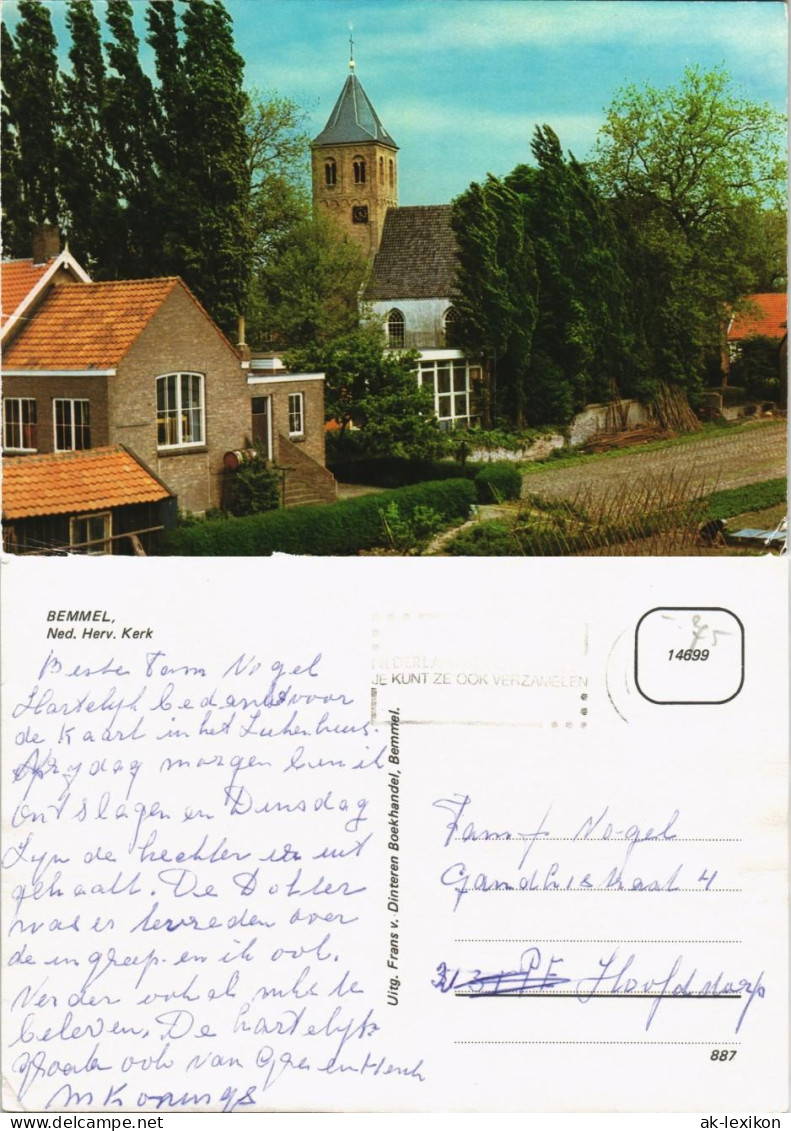 BEMMEL,
Ned. Herv. Kerk
Beste Fam Nogel
Hartelijk bedankt voor
de Kaart in het Ziekenhuis.
Vrydag morgen ben ik
ontslagen en Dinsdag
Zyn de hechten er uit
gehaalt. De Dokter
was er tevreden over
de ingreep en ik ook.
Verder ook als
beleven. De hartelijk
ook van
M Konings
Uitg. Frans v. Dinteren Boekhandel, Bemmel.
JE KUNT ZE OOK VERZAMELEN
14699
Fam Nogel
Gandhistraat 4
Hoofddorp
887
ak-lexikon